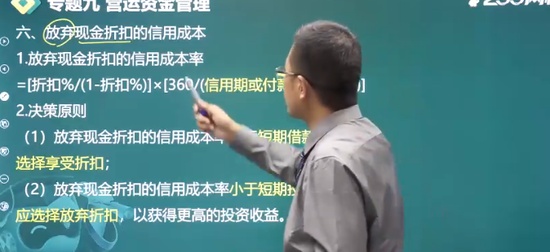 专题九 营运资金管理
六、放弃现金折扣的信用成本
1.放弃现金折扣的信用成本率
=[折扣%/(1-折扣%)]×[360/(信用期或付款 )]
2.决策原则
（1）放弃现金折扣的信用成本率 短期借款
选择享受折扣；
（2）放弃现金折扣的信用成本率小于短期投
应选择放弃折扣，以获得更高的投资收益。